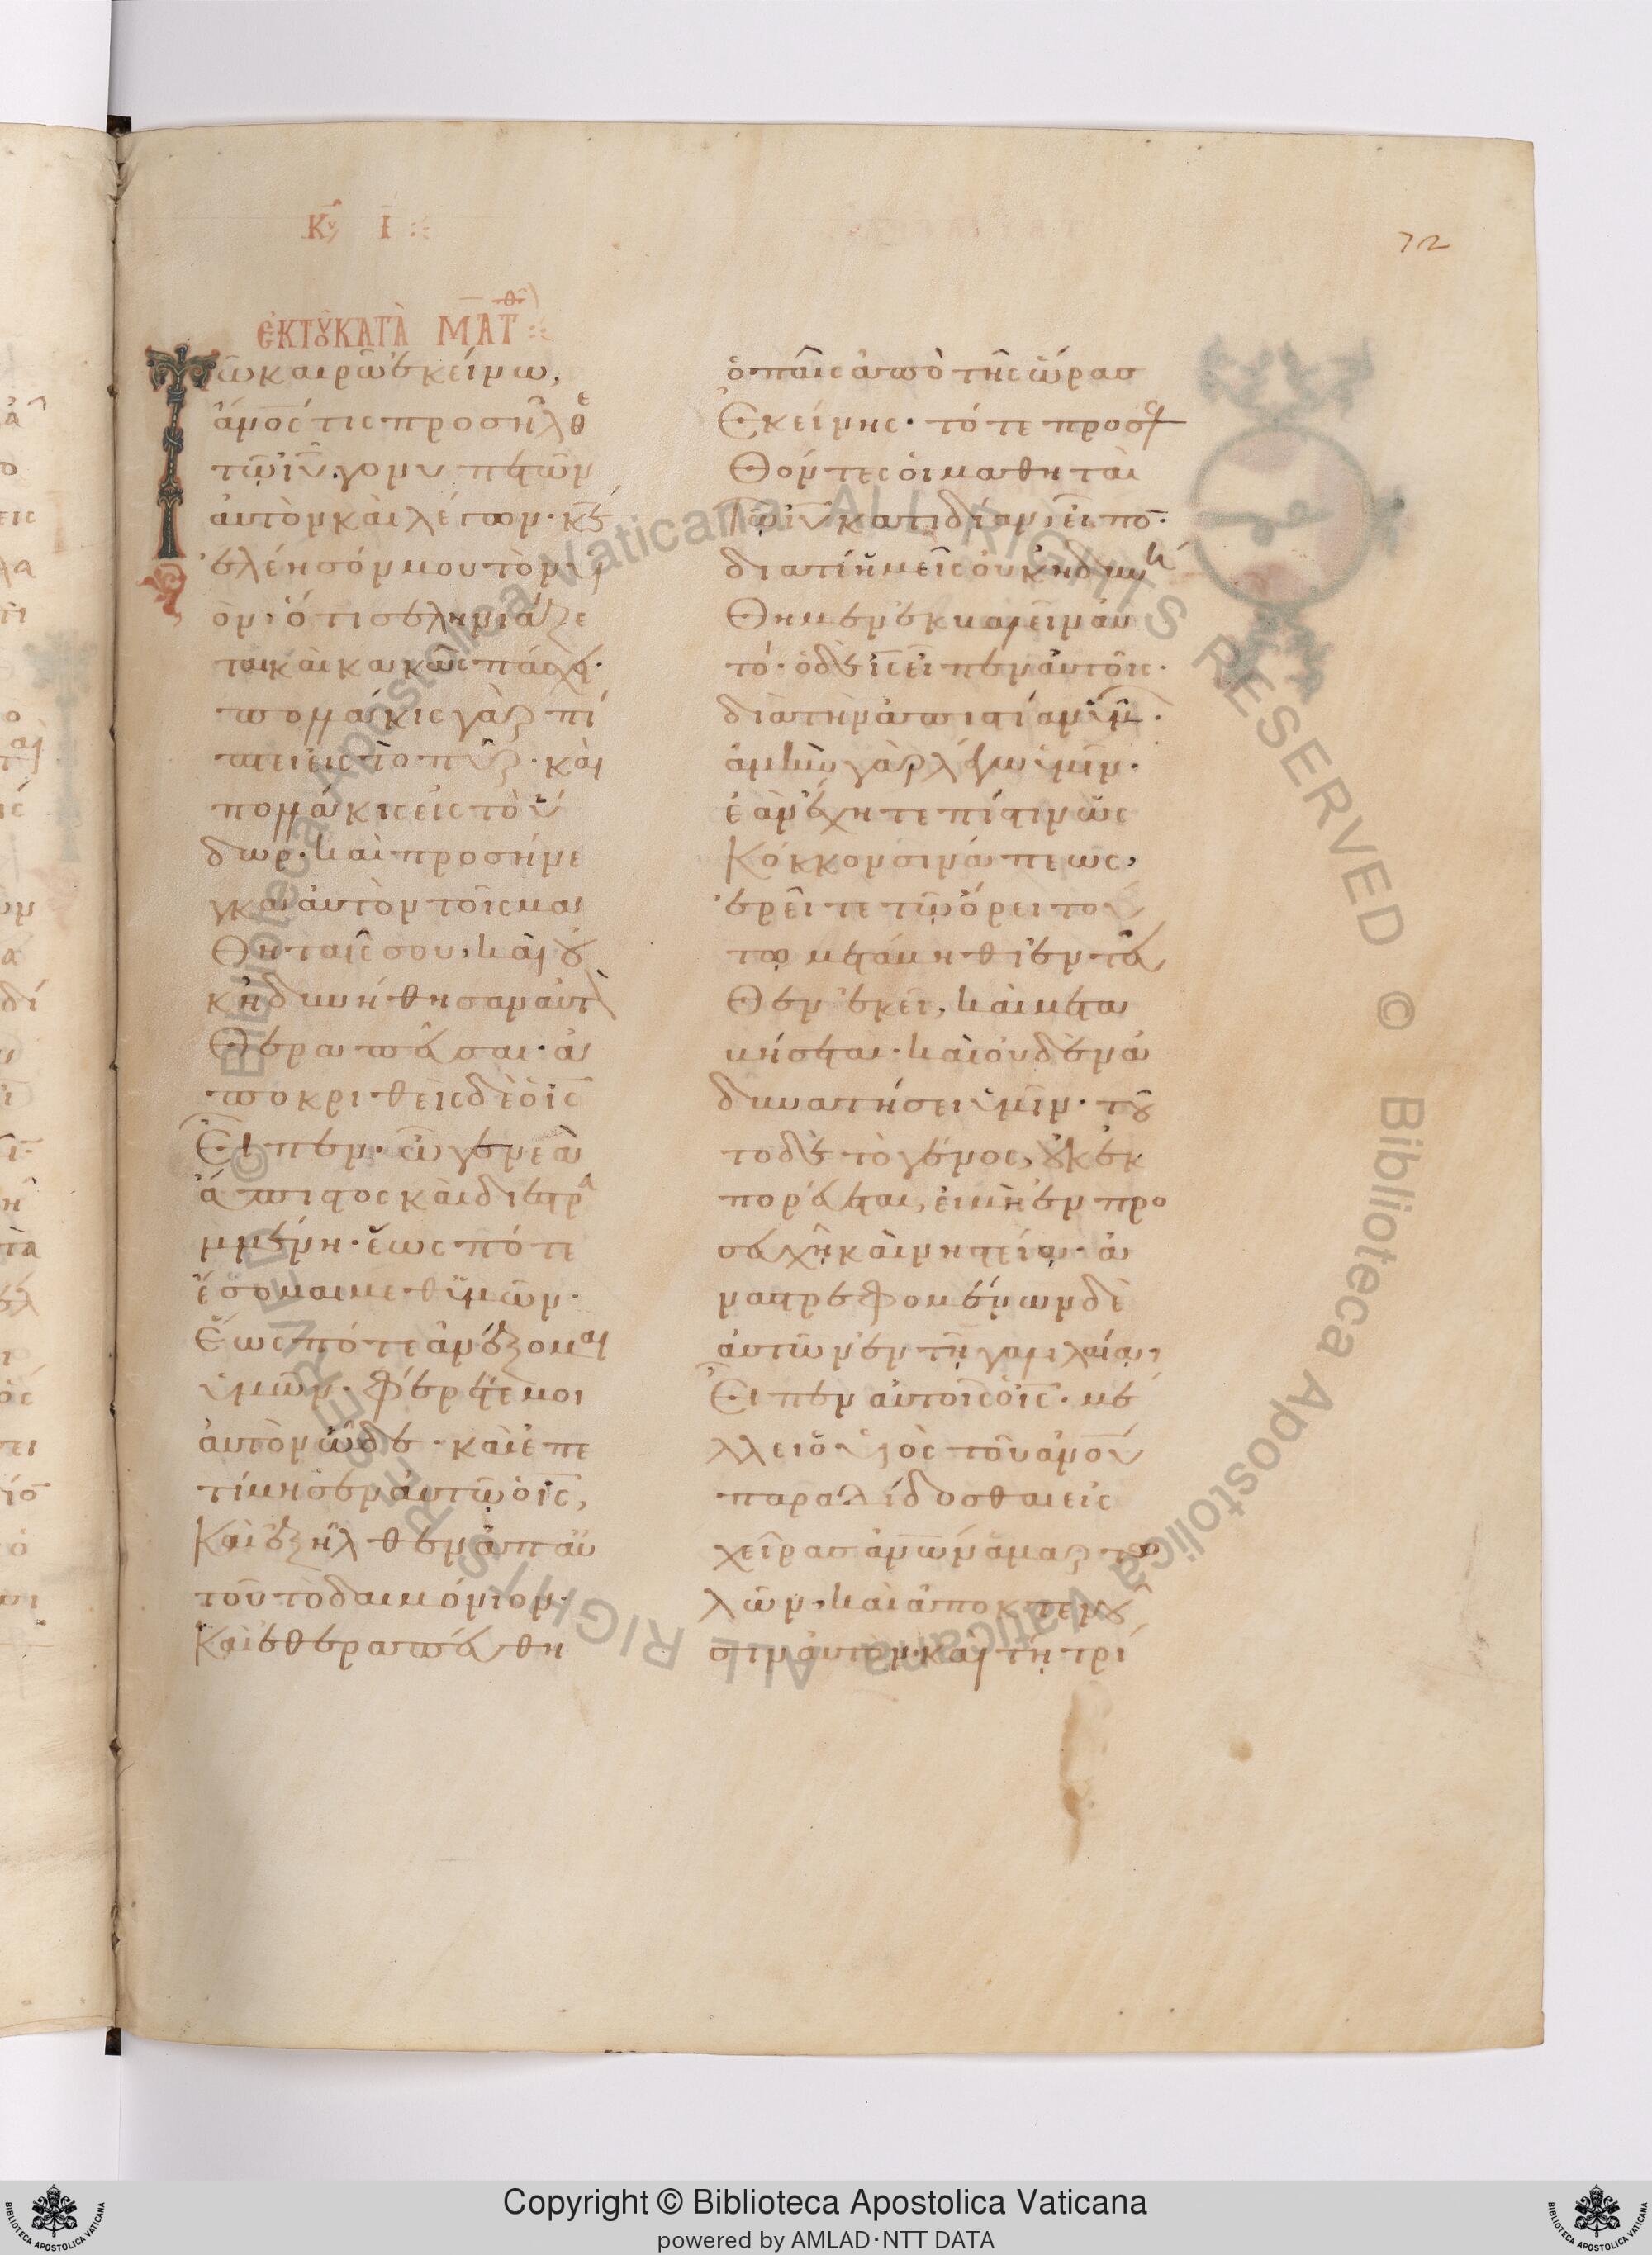 Κυ Ι
72
ἐκ τοῦ κατὰ Ματθ
Τῶ καιρῶ ἐκείνω,
ἀνος τις προσῆλθε
τῶ ιυ. γονυπετῶν
αὐτὸν καὶ λέγων· κε
ἐλέησόν μου τὸν υἱ
όν· ὅτι σεληνιάζε
ται καὶ κακῶς πάσχει·
πολλάκις γὰρ πί
πτει εἰς τὸ πῦρ· καὶ
πολλάκις εἰς τὸ ὕ
δωρ· καὶ προσήνε
γκα αὐτὸν τοῖς μα
θηταῖς σου, καὶ οὐ
κ ἠδυνήθησαν αὐτὸν
θεραπεῦσαι· ἀ
ποκριθεὶς δὲ ὁ ις
εἶπεν· ὦ γενεὰ
ἄπιστος καὶ διεστρα
μμένη· ἕως πότε
ἔσομαι μεθ ὑμῶν·
ἕως πότε ἀνέξομαι
ὑμῶν· φέρετέ μοι
αὐτὸν ὧδε· καὶ ἐπε
τίμησεν αὐτῶ ὁ ις,
καὶ ἐξῆλθεν ἀπ αὐ
τοῦ τὸ δαιμόνιον·
καὶ ἐθεραπεύθη
ὁ παῖς ἀπὸ τῆς ὥρας
ἐκείνης· τότε προσελ
θόντες οἱ μαθηταὶ
τῶ ιυ κατιδίαν, εἶπον·
διατί ἡμεῖς οὐκ ἠδυνή
θημεν ἐκβαλεῖν αὐ
τό· ὁ δὲ ις εἶπεν αὐτοῖς·
διὰ τὴν ἀπιστίαν ὑμῶν·
ἀμὴν γὰρ λέγω ὑμῖν·
ἐὰν ἔχητε πίστιν ὡς
κόκκον σινάπεως,
ἐρεῖτε τῶ ὄρει τού
τω μετάβηθι ἐντεῦ
θεν ἐκεῖ, καὶ μετα
βήσεται· καὶ οὐδὲν ἀ
δυνατήσει ὑμῖν· τοῦ
το δὲ τὸ γένος, οὐκ ἐκ
πορεύεται, εἰ μὴ ἐν προ
σευχῆ καὶ νηστεία· ἀ
ναστρεφομένων δὲ
αὐτῶν ἐν τῆ γαλιλαία,
εἶπεν αὐτοῖς ὁ ις· μέ
λλει ὁ υἱὸς τοῦ ἀνου
παραδίδοσθαι εἰς
χεῖρας ἀνων ἁμαρτω
λῶν, καὶ ἀποκτενοῦ
σιν αὐτὸν· καὶ τῆ τρί
© Biblioteca Apostolica Vaticana ALL RIGHTS RESERVED © Biblioteca Apostolica Vaticana ALL RIGHTS RESERVED
Copyright © Biblioteca Apostolica Vaticana
powered by AMLAD·NTT DATA
BIBLIOTECA APOSTOLICA VATICANA
BIBLIOTECA APOSTOLICA VATICANA